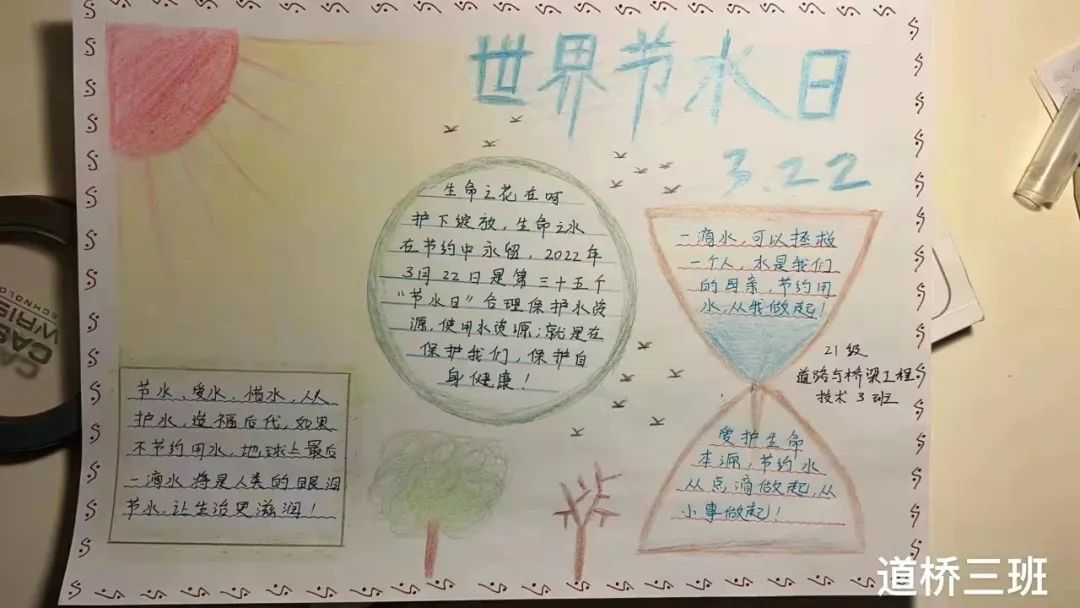 世界节水日
3.22
生命之花在呵
护下绽放,生命之水
在节约中永留,2022年
3月22日是第三十五个
“节水日”合理保护水资
源,使用水资源;就是在
保护我们,保护自
身健康!
一滴水,可以拯救
一个人,水是我们
的母亲,节约用
水,从我做起!
21级
道路与桥梁工程
技术3班
节水、爱水、惜水,从
护水,造福后代,如果
不节约用水,地球上最后
一滴水将是人类的眼泪
节水,让生活更滋润!
爱护生命
本源,节约水
从点滴做起,从
小事做起!
CASIO
WRIS
TECHNOLO
道桥三班